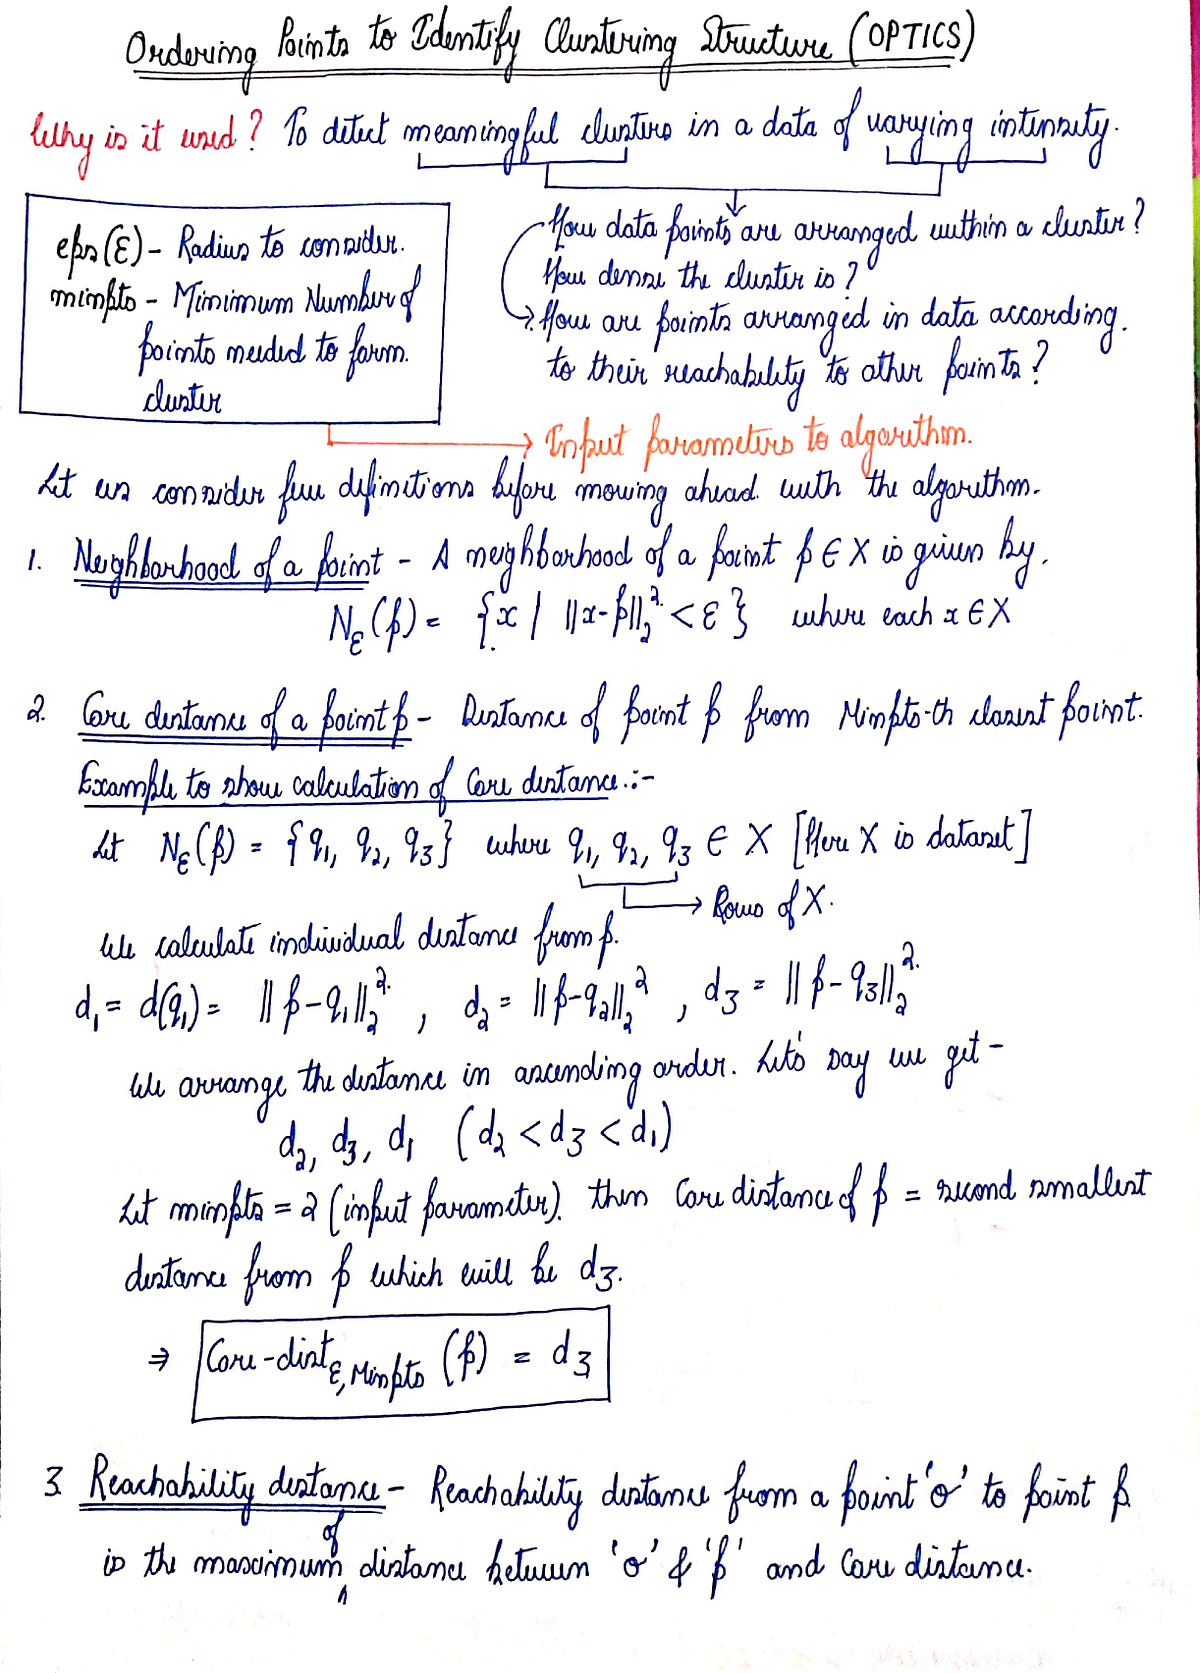 Ordering Points to Identify Clustering Structure (OPTICS)
Why is it used? To detect meaningful clusters in a data of varying intensity.
eps(ε) - Radius to consider.
minpts - Minimum Number of
points needed to form
cluster
How data points are arranged within a cluster?
How dense the cluster is?
How are points arranged in data according
to their reachability to other points?
Input parameters to algorithm.
Let us consider few definitions before moving ahead with the algorithm.
1. Neighborhood of a point - A neighborhood of a point p ∈ X is given by,
Nε(p) = {x | ||x-p||₂² < ε} where each x ∈ X
2. Core distance of a point p - Distance of point p from Minpts-th closest point.
Example to show calculation of Core distance :-
Let Nε(p) = {q₁, q₂, q₃} where q₁, q₂, q₃ ∈ X [Here X is dataset]
Rows of X.
We calculate individual distance from p.
d₁ = d(q₁) = ||p-q₁||₂² , d₂ = ||p-q₂||₂² , d₃ = ||p-q₃||₂²
We arrange the distance in ascending order. Let's say we get -
d₂, d₃, d₁ (d₂ < d₃ < d₁)
Let minpts = 2 (input parameter). then Core distance of p = second smallest
distance from p which will be d₃.
⇒ Core-dist ε, Minpts (p) = d₃
3. Reachability distance - Reachability distance from a point 'o' to point p
is the maximum of distance between 'o' & 'p' and Core distance.